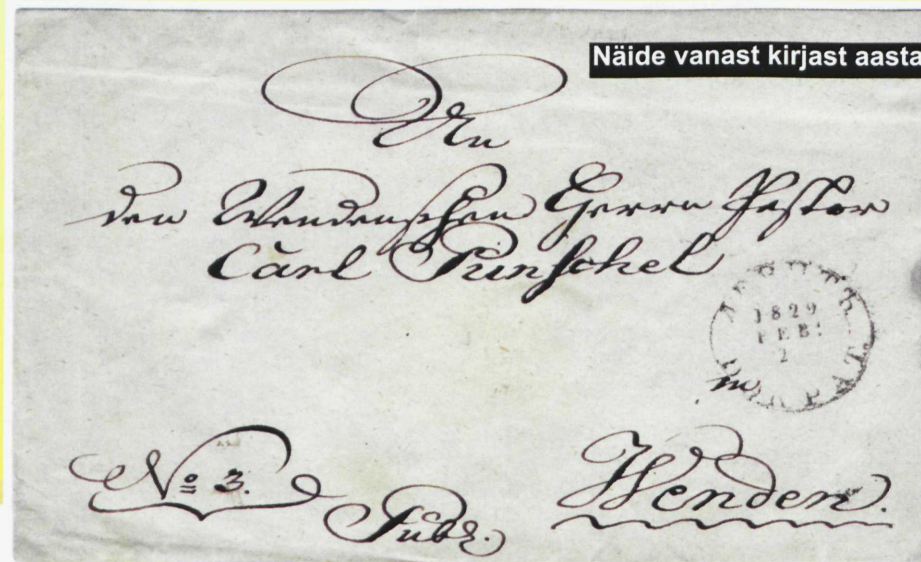 Näide vanast kirjast aasta
An
den Wendenschen Herrn Pastor
Carl Punschel
1829
FEB:
2
DORPAT.
in
No 3.
Publ.
Wenden.